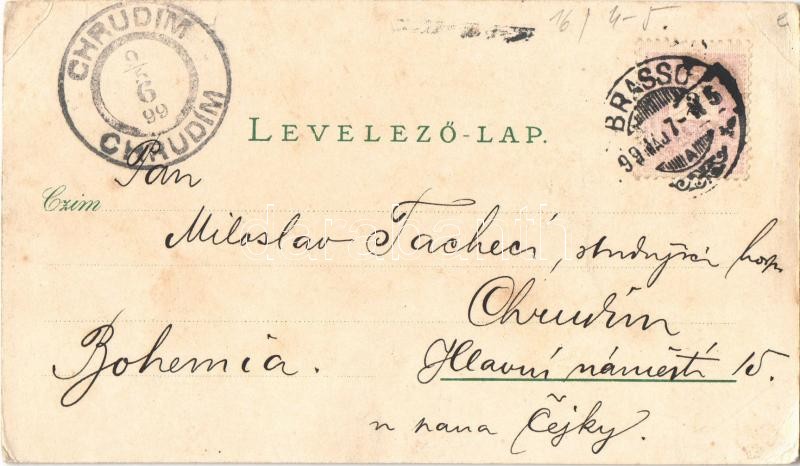 16/ 4-5.
CHRUDIM
9/5
6
99
CHRUDIM
BRASSÓ
99 MÁJ 7
LEVELEZŐ-LAP.
Pán
Czim
Miloslav Tacheci, studující
Chrudim
Bohemia.
Hlavní náměstí 15.
u pana Čejky.